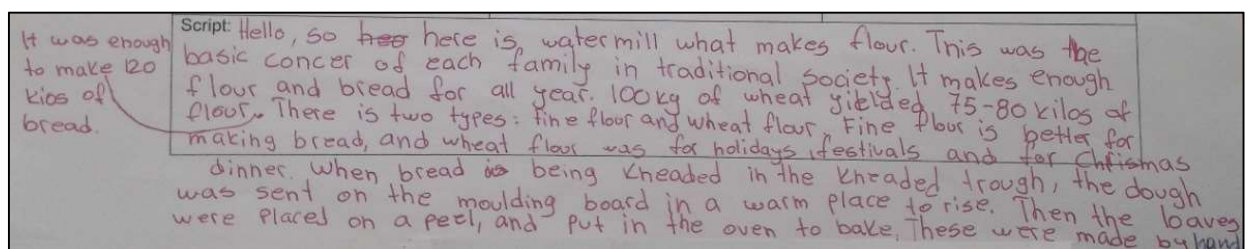 It was enough
to make 120
kios of
bread.
Script: Hello, so hee here is, watermill what makes flour. This was the
basic concer of each family in traditional society. It makes enough
flour and bread for all year. 100kg of wheat yielded 75-80 kilos of
flour. There is two types: fine flour and wheat flour. Fine flour is better for
making bread, and wheat flour was for holidays, festivals and for Christmas
dinner. When bread is being kneaded in the kneaded trough, the dough
was sent on the moulding board in a warm place to rise. Then the loaves
were placed on a peel, and put in the oven to bake. These were made by hand